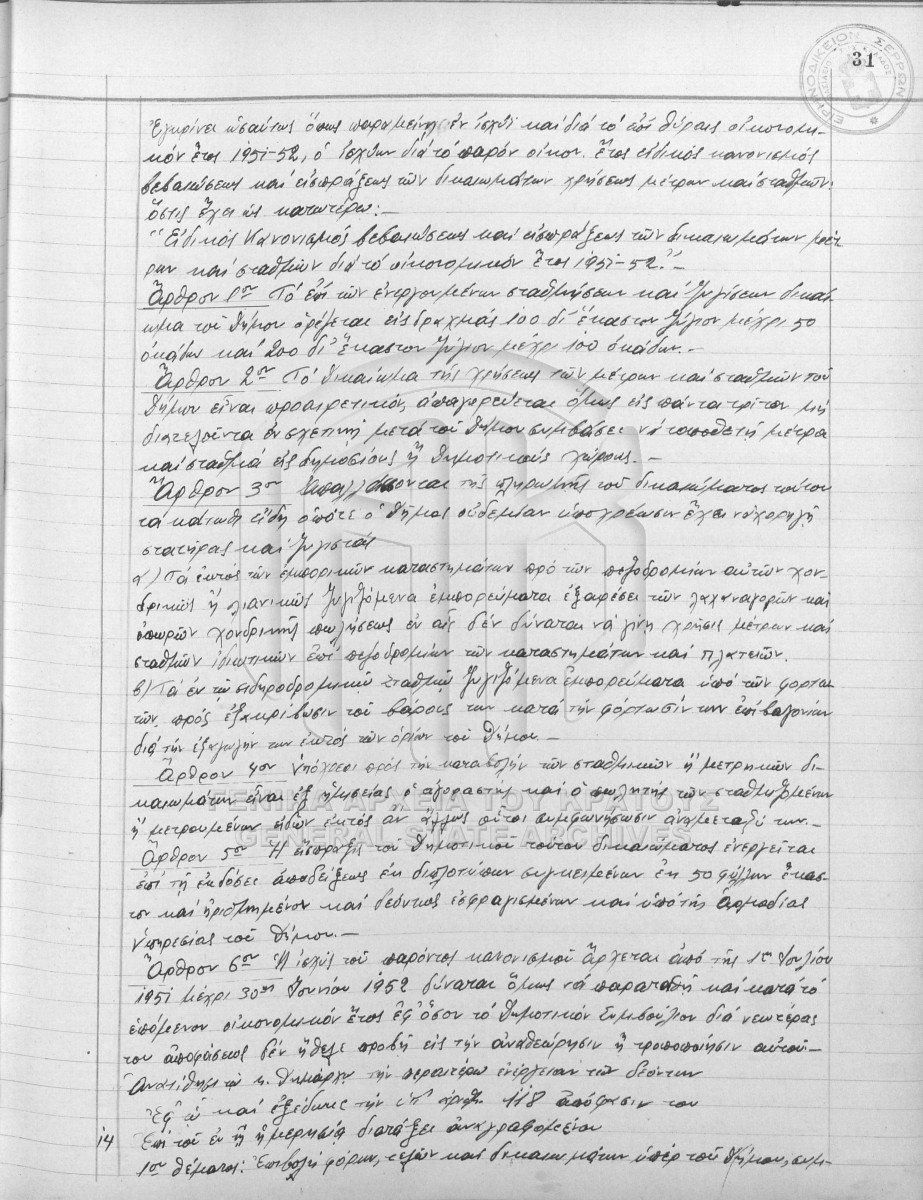 31
ΕΙΡΗΝΟΔΙΚΕΙΟΝ ΣΕΡΡΩΝ
Ἐγκρίνει ὡσαύτως ὅπως παραμείνῃ ἐν ἰσχύϊ καὶ διὰ τὸ ἐπὶ θύραις οἰκονομι-
κόν ἔτος 1951-52, ὁ ἰσχύων διὰ τὸ παρόν οἰκον. ἔτος εἰδικός κανονισμός
βεβαιώσεως καὶ εἰσπράξεως τῶν δικαιωμάτων χρήσεως μέτρων καὶ σταθμῶν
ὅστις ἔχει ὡς κατωτέρω:—
"Εἰδικός Κανονισμός βεβαιώσεως καὶ εἰσπράξεως τῶν δικαιωμάτων μέτ-
ρων καὶ σταθμῶν διὰ τὸ οἰκονομικόν ἔτος 1951-52."—
Ἄρθρον 1ον Τό ἐπὶ τῶν ἐνεργουμένων σταθμήσεων καὶ ζυγίσεων δικαί-
ωμα τοῦ Δήμου ὁρίζεται εἰς δραχμάς 100 δι' ἕκαστον ζύγιον μέχρι 50
ὀκάδων καὶ 200 δι' ἕκαστον ζύγιον μέχρι 100 ὀκάδων.—
Ἄρθρον 2ον Τό δικαίωμα τῆς χρήσεως τῶν μέτρων καὶ σταθμῶν τοῦ
Δήμου εἶναι προαιρετικόν, ἀπαγορεύεται ὅμως εἰς πάντα τρίτον μή
διατελοῦντα ἐν σχετικῇ μετὰ τοῦ Δήμου συμβάσει νὰ τοποθετῇ μέτρα
καὶ σταθμά εἰς δημοσίους ἤ δημοτικούς χώρους.—
Ἄρθρον 3ον Ἀπαλλάσσονται τῆς πληρωμῆς τοῦ δικαιώματος τούτου
τὰ κάτωθι εἴδη ὁπότε ὁ Δῆμος οὐδεμίαν ὑποχρέωσιν ἔχει νὰ χορηγῇ
στατῆρας καὶ ζυγιστάς
α) Τά ἐντός τῶν ἐμπορικῶν καταστημάτων πρό τῶν πεζοδρομίων αὐτῶν χον-
δρικῶς ἤ λιανικῶς ζυγιζόμενα ἐμπορεύματα ἐξαιρέσει τῶν λαχαναγορῶν καὶ
ὀπωρῶν χονδρικῆς πωλήσεως ἐν αἷς δέν δύναται νὰ γίνῃ χρῆσις μέτρων καὶ
σταθμῶν ἰδιωτικῶν ἐπί πεζοδρομίων τῶν καταστημάτων καὶ πλατειῶν.
β) Τά ἐν τῷ σιδηροδρομικῷ Σταθμῷ ζυγιζόμενα ἐμπορεύματα ὑπό τῶν φορτω-
τῶν πρός ἐξακρίβωσιν τοῦ βάρους των κατά τήν φόρτωσίν των ἐπί βαγονίων
διά τήν ἐξαγωγήν των ἐκτός τῶν ὁρίων τοῦ Δήμου.—
Ἄρθρον 4ον Ὑπόχρεοι πρός τήν καταβολήν τῶν σταθμικῶν ἤ μετρικῶν δι-
καιωμάτων εἶναι ἐξ ἡμισείας ὁ ἀγοραστής καὶ ὁ πωλητής τῶν σταθμιζομένων
ἤ μετρουμένων εἰδῶν ἐκτός ἄν ἄλλως οὗτοι συμφωνήσωσιν ἀναμεταξύ των.—
Ἄρθρον 5ον Ἡ εἴσπραξις τοῦ δημοτικοῦ τούτου δικαιώματος ἐνεργεῖται
ἐπί τῇ ἐκδόσει ἀποδείξεως ἐκ διπλοτύπων συγκειμένων ἐκ 50 φύλλων ἕκασ-
τον καὶ ἠριθμημένων καὶ δεόντως ἐσφραγισμένων καὶ ὑπό τῆς ἁρμοδίας
Ὑπηρεσίας τοῦ Δήμου.—
Ἄρθρον 6ον Ἡ ἰσχύς τοῦ παρόντος κανονισμοῦ ἄρχεται ἀπό τῆς 1ης Ἰουλίου
1951 μέχρι 30ης Ἰουνίου 1952 δύναται ὅμως νὰ παραταθῇ καὶ κατά τό
ἑπόμενον οἰκονομικόν ἔτος ἐφ' ὅσον τό Δημοτικόν Συμβούλιον διά νεωτέρας
του ἀποφάσεως δέν ἤθελε προβῇ εἰς τήν ἀναθεώρησιν ἤ τροποποίησιν αὐτοῦ—
Ἀνατίθησι τῷ κ. Δημάρχῳ τήν περαιτέρω ἐνέργειαν τῶν δεόντων
Ἐφ' ᾧ καὶ ἐξέδωκε τήν ὑπ' ἀριθ. 118 ἀπόφασίν του
14 Ἐπί τοῦ ἐν τῇ ἡμερησίᾳ διατάξει ἀναγραφομένου
1ου θέματος: Ἐπιβολή φόρων, τελῶν καὶ δικαιωμάτων ὑπέρ τοῦ Δήμου, συμ-
ΓΕΝΙΚΑ ΑΡΧΕΙΑ ΤΟΥ ΚΡΑΤΟΥΣ
GENERAL STATE ARCHIVES